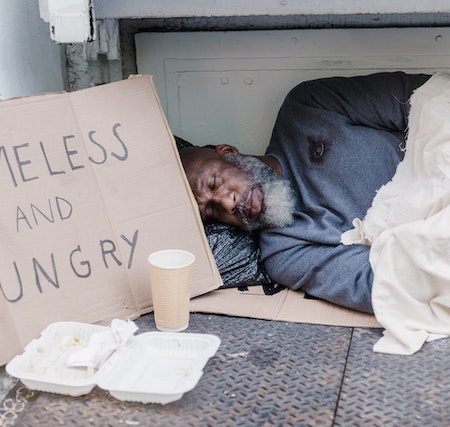 MELESS
AND
UNGRY